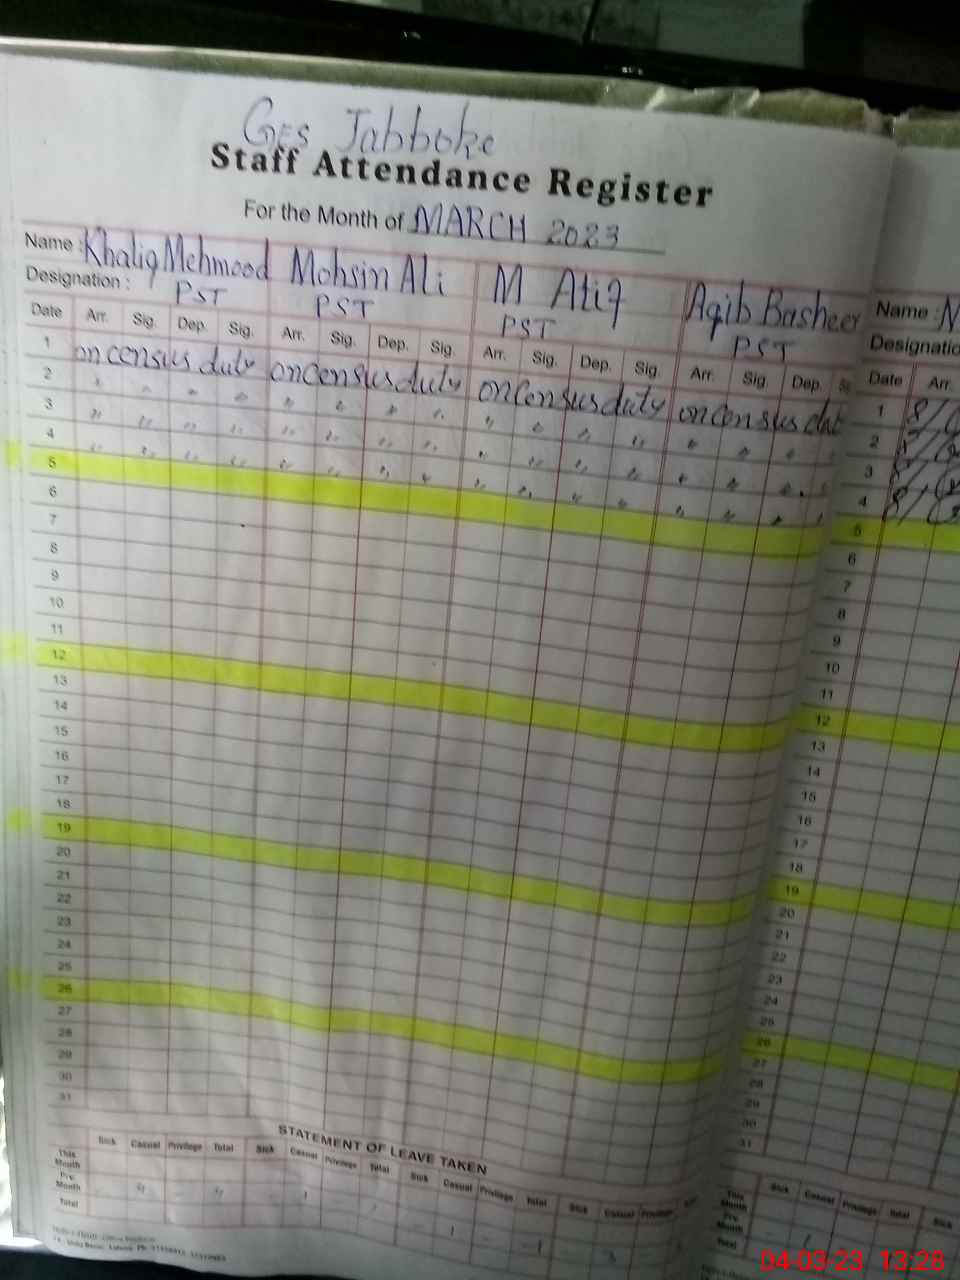 GES Jabboke
Staff Attendance Register
For the Month of MARCH 2023
Name : Khaliq Mehmood Mohsin Ali M Atiq Aqib Basheer
Designation : PST PST PST PST
Date Arr. Sig. Dep. Sig. Arr. Sig. Dep. Sig. Arr. Sig. Dep. Sig. Arr. Sig. Dep.
1 on census duty on census duty on census duty on census dut
2 " " " " " " " " " " " " " " "
3 " " " " " " " " " " " " " " "
4 " " " " " " " " " " " " " " "
5
6
7
8
9
10
11
12
13
14
15
16
17
18
19
20
21
22
23
24
25
26
27
28
29
30
31
STATEMENT OF LEAVE TAKEN
Sick Casual Privilege Total Sick Casual Privilege Total Sick Casual Privilege Total Sick Casual Privilege
This Month
Pre. Month
Total
Name :
Designatio
Date Arr.
1
2
3
4
5
6
7
8
9
10
11
12
13
14
15
16
17
18
19
20
21
22
23
24
25
26
27
28
29
30
31
Sick Casual Privilege Total Sick
This Month
Pre. Month
Total
04-03-23 13:28